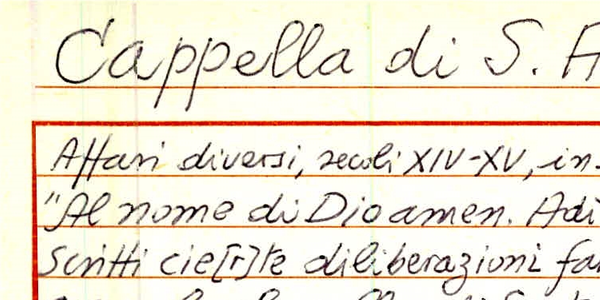 Cappella di S.
Affari diversi, secoli XIV-XV, in-
"Al nome di Dio amen. Adi
Scritti cie[r]te diliberazioni